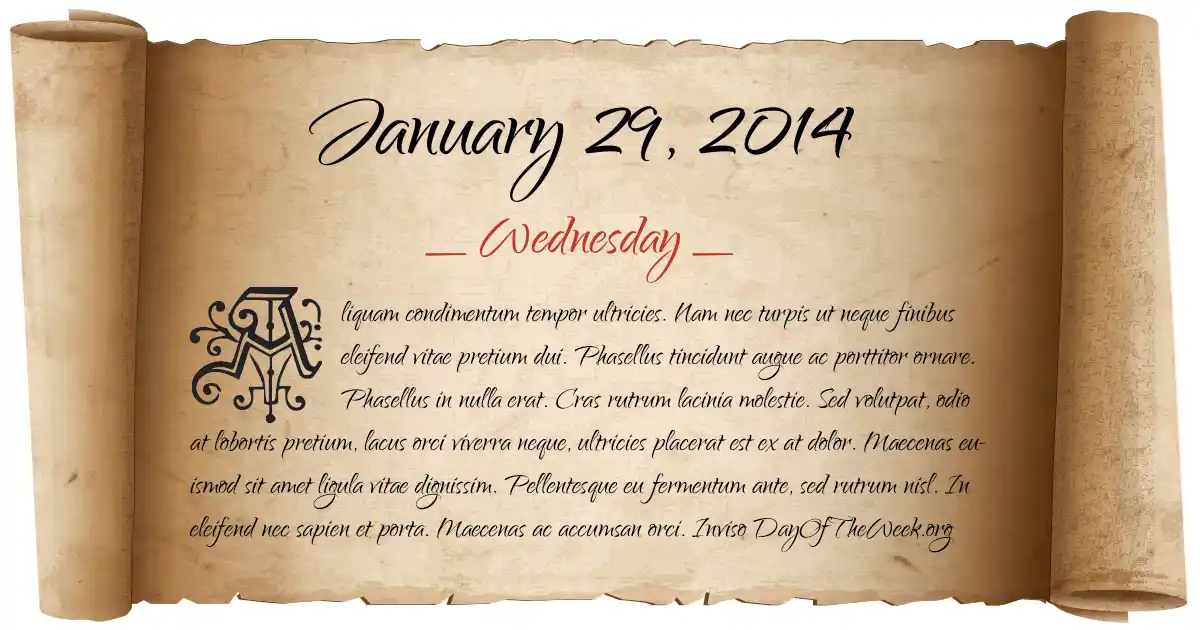 January 29, 2014
Wednesday
Aliquam condimentum tempor ultricies. Nam nec turpis ut neque finibus
eleifend vitae pretium dui. Phasellus tincidunt augue ac porttitor ornare.
Phasellus in nulla erat. Cras rutrum lacinia molestie. Sed volutpat, odio
at lobortis pretium, lacus orci viverra neque, ultricies placerat est ex at dolor. Maecenas eu-
ismod sit amet ligula vitae dignissim. Pellentesque eu fermentum ante, sed rutrum nisl. In
eleifend nec sapien et porta. Maecenas ac accumsan orci. Inviso DayOfTheWeek.org